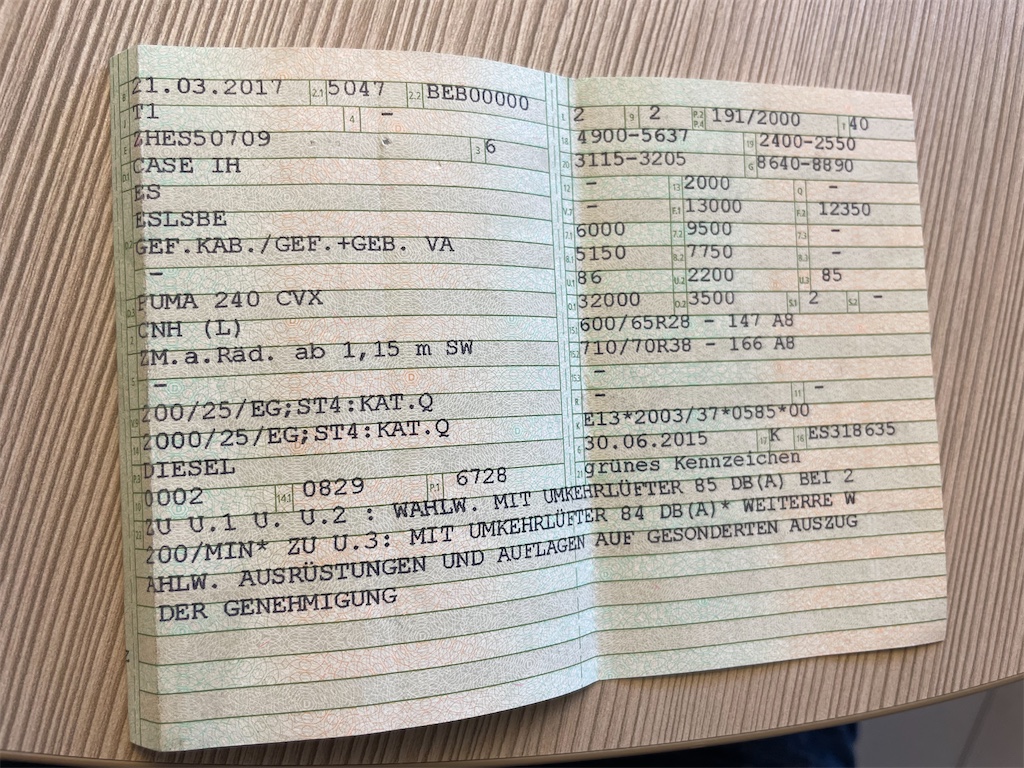 21.03.2017 2.1 5047 2.2 BEB00000
T1 4 –
ZHES50709 3 6
CASE IH
ES
ESLSBE
GEF.KAB./GEF.+GEB. VA
–
PUMA 240 CVX
CNH (L)
ZM.a.Räd. ab 1,15 m SW
–
200/25/EG;ST4:KAT.Q
2000/25/EG;ST4:KAT.Q
DIESEL
0002 14.1 0829 P.1 6728
2 9 2 P.2 P.4 191/2000 T 40
18 4900-5637 19 2400-2550
20 3115-3205 G 8640-8890
12 – 13 2000 Q –
V.7 – F.1 13000 F.2 12350
7.1 6000 7.2 9500 7.3 –
8.1 5150 8.2 7750 8.3 –
U.1 86 U.2 2200 U.3 85
O.1 32000 O.2 3500 S.1 2 S.2 –
15.1 600/65R28 – 147 A8
15.2 710/70R38 – 166 A8
15.3 –
R – 11 –
K E13*2003/37*0585*00
6 30.06.2015 17 K 16 ES318635
21 grünes Kennzeichen
ZU U.1 U. U.2 : WAHLW. MIT UMKEHRLÜFTER 85 DB(A) BEI 2
200/MIN* ZU U.3: MIT UMKEHRLÜFTER 84 DB(A)* WEITERRE W
AHLW. AUSRÜSTUNGEN UND AUFLAGEN AUF GESONDERTEN AUSZUG
DER GENEHMIGUNG